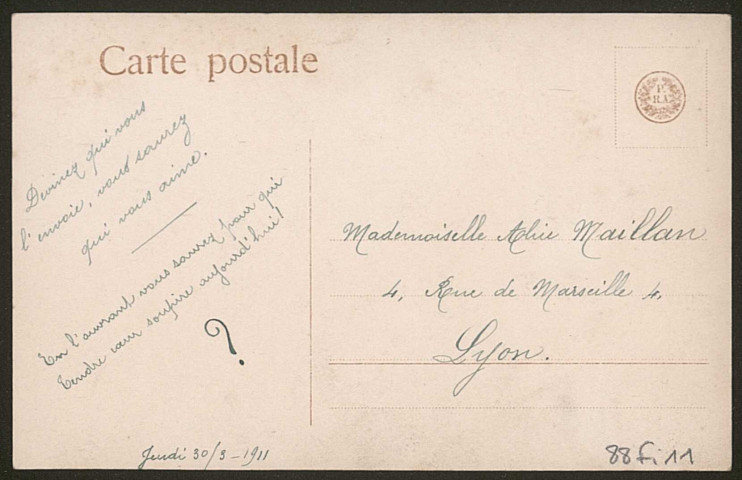 Carte postale
F.
R.A.
Devinez qui vous
l'envoie, vous saurez
qui vous aime.
En l'ouvrant vous saurez pour qui
tendre cœur soupire aujourd'hui!
?
Mademoiselle Alice Maillan
4, Rue de Marseille 4,
Lyon.
Jeudi 30/3-1911
88Fi11